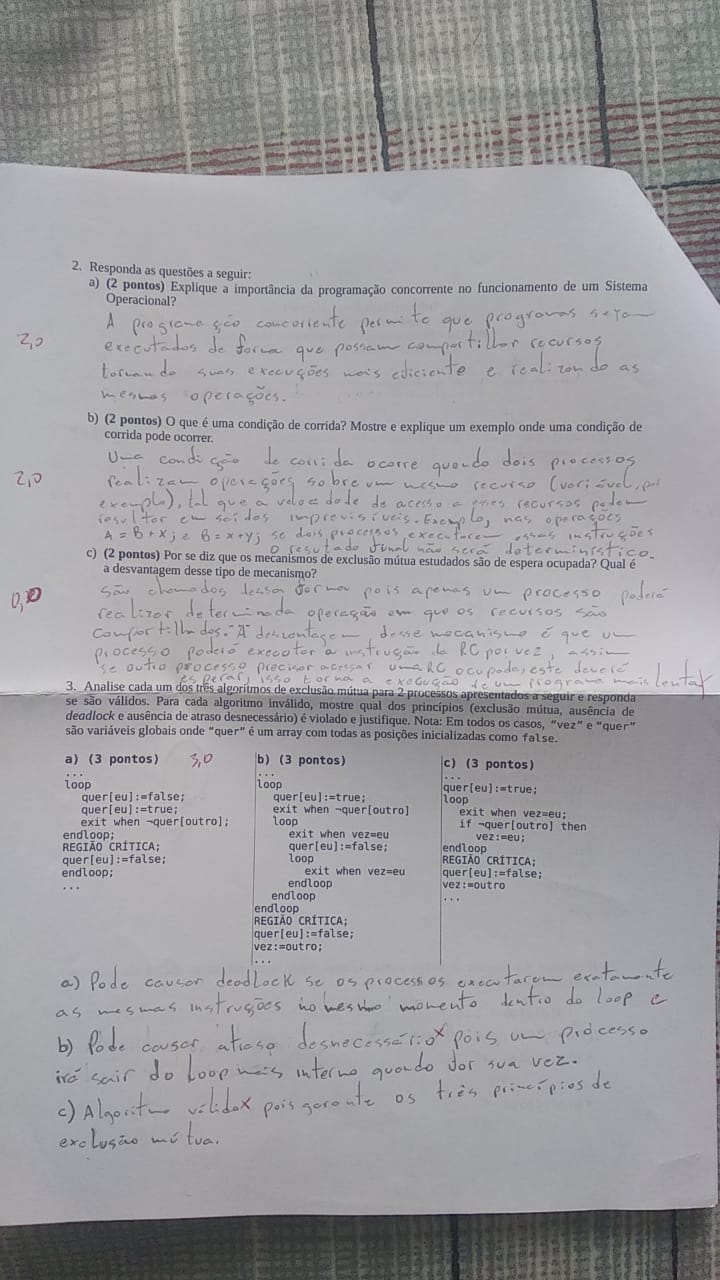 2. Responda as questões a seguir:
a) (2 pontos) Explique a importância da programação concorrente no funcionamento de um Sistema
Operacional?
A programação concorriente permite que programas sejam
2,0
executados de forma que possam compartilhar recursos
tornando suas execuções mais eficiente e realizando as
mesmas operações.
b) (2 pontos) O que é uma condição de corrida? Mostre e explique um exemplo onde uma condição de
corrida pode ocorrer.
Uma condição de corrida ocorre quando dois processos
2,0
realizam operações sobre um mesmo recurso (variável, por
exemplo), tal que a velocidade de acesso a esses recursos podem
resultar em saídas imprevisíveis. Exemplo, nas operações
A = B + X; e B = x + y; se dois processos executarem essas instruções
o resutado final não será determinístico.
c) (2 pontos) Por se diz que os mecanismos de exclusão mútua estudados são de espera ocupada? Qual é
a desvantagem desse tipo de mecanismo?
São chamados dessa forma pois apenas um processo poderá
0,0
realizar determinada operação em que os recursos são
compartilhados. A desvantagem desse mecanismo é que um
processo poderá executar a instrução da RC por vez, assim
se outro processo precisar acessar uma RC ocupada, este deverá
esperar, isso torna a execução de um programa mais lenta
3. Analise cada um dos três algoritmos de exclusão mútua para 2 processos apresentados a seguir e responda
se são válidos. Para cada algoritmo inválido, mostre qual dos princípios (exclusão mútua, ausência de
deadlock e ausência de atraso desnecessário) é violado e justifique. Nota: Em todos os casos, "vez" e "quer"
são variáveis globais onde "quer" é um array com todas as posições inicializadas como false.
a) (3 pontos) 3,0
...
loop
quer[eu]:=false;
quer[eu]:=true;
exit when ¬quer[outro];
endloop;
REGIÃO CRÍTICA;
quer[eu]:=false;
endloop;
...
b) (3 pontos)
...
loop
quer[eu]:=true;
exit when ¬quer[outro]
loop
exit when vez=eu
quer[eu]:=false;
loop
exit when vez=eu
endloop
endloop
endloop
REGIÃO CRÍTICA;
quer[eu]:=false;
vez:=outro;
...
c) (3 pontos)
...
quer[eu]:=true;
loop
exit when vez=eu;
if ¬quer[outro] then
vez:=eu;
endloop
REGIÃO CRÍTICA;
quer[eu]:=false;
vez:=outro
...
a) Pode causar deadlock se os processos executarem exatamente
as mesmas instruções no mesmo momento dentro do loop e
b) Pode causar atraso desnecessário x pois um processo
irá sair do loop mais interno quando for sua vez.
c) Algoritmo válido x pois garante os três princípios de
exclusão mútua.